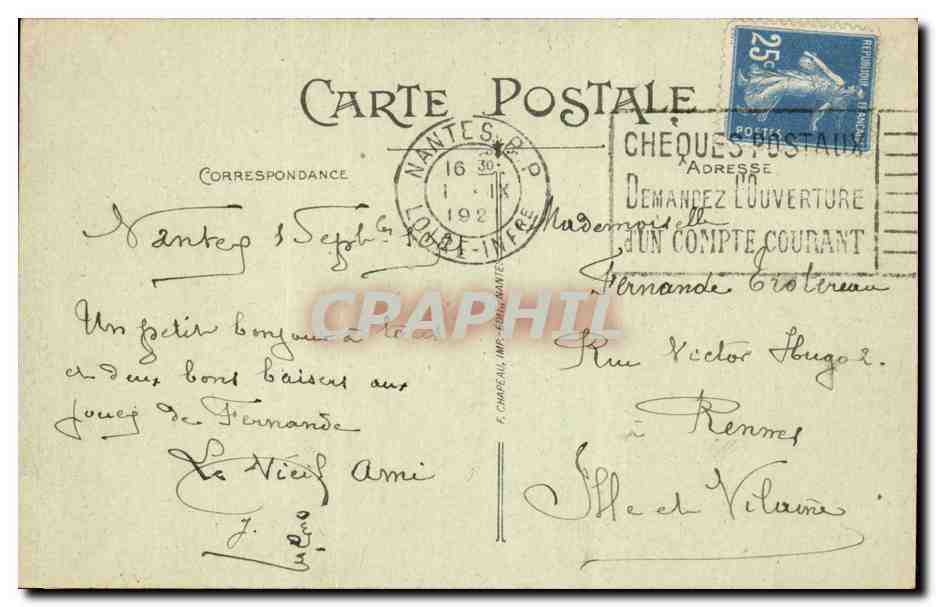 CARTE POSTALE
CORRESPONDANCE
ADRESSE
RÉPUBLIQUE FRANÇAISE
25c
POSTES
NANTES R.P.
16 30
1 - IX
192
LOIRE-INFRE
CHÈQUES POSTAUX
DEMANDEZ L'OUVERTURE
d'UN COMPTE COURANT
Nantes 1 Septbre
Un petit bonjour à tous
et deux bons baisers aux
joues de Fernande
Le Vieil Ami
J.
F. CHAPEAU, IMP.-EDIT., NANTES
Mademoiselle
Fernande Trotereau
Rue Victor Hugo 2.
à Rennes
Ille et Vilaine
CPRAPHIL